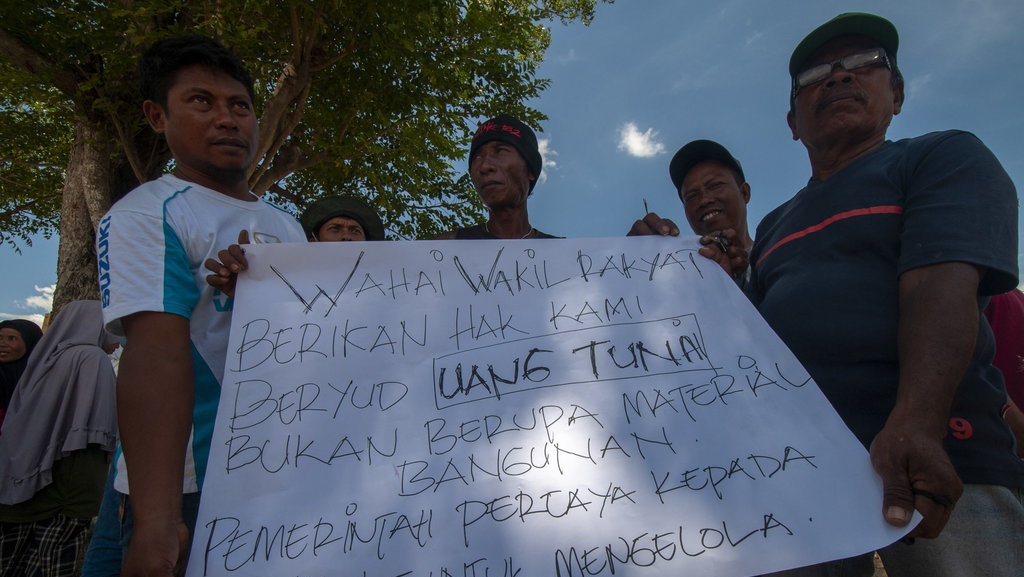 WAHAI WAKIL RAKYAT
BERIKAN HAK KAMI
BERYUD UANG TUNAI
BUKAN BERUPA MATERIAL
BANGUNAN.
PEMERINTAH PERCAYA KEPADA
UNTUK MENGELOLA.
SUZUKI
9